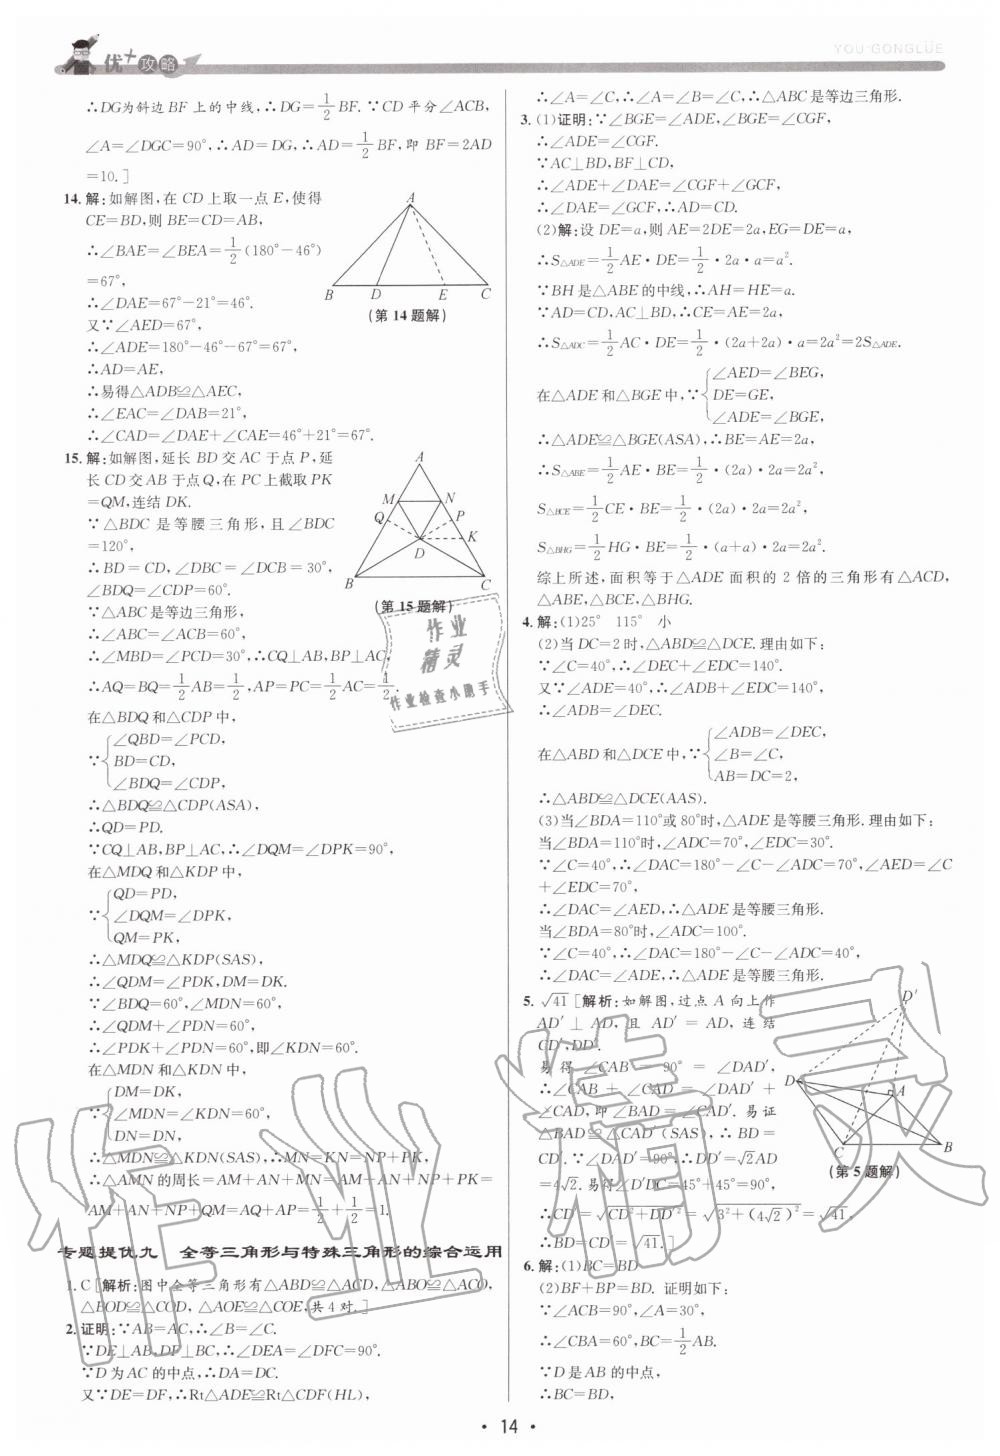 优+攻略
YOU·GONGLÜE
∴DG为斜边BF上的中线,∴DG=1/2BF.∵CD平分∠ACB,
∠A=∠DGC=90°,∴AD=DG,∴AD=1/2BF,即BF=2AD
=10.]
14.解:如解图,在CD上取一点E,使得
CE=BD,则BE=CD=AB,
∴∠BAE=∠BEA=1/2(180°-46°)
=67°,
∴∠DAE=67°-21°=46°.
又∵∠AED=67°,
∴∠ADE=180°-46°-67°=67°,
∴AD=AE,
∴易得△ADB≌△AEC,
∴∠EAC=∠DAB=21°,
∴∠CAD=∠DAE+∠CAE=46°+21°=67°.
A
B D E C
(第14题解)
15.解:如解图,延长BD交AC于点P,延
长CD交AB于点Q,在PC上截取PK
=QM,连结DK.
∵△BDC是等腰三角形,且∠BDC
=120°,
∴BD=CD,∠DBC=∠DCB=30°,
∠BDQ=∠CDP=60°.
∵△ABC是等边三角形,
∴∠ABC=∠ACB=60°,
∴∠MBD=∠PCD=30°,∴CQ⊥AB,BP⊥AC,
∴AQ=BQ=1/2AB=1/2,AP=PC=1/2AC=1/2.
A
M N
Q P
K
D
B C
(第15题解)
作业
精灵
作业检查小助手
在△BDQ和△CDP中,
∠QBD=∠PCD,
∵{BD=CD,
∠BDQ=∠CDP,
∴△BDQ≌△CDP(ASA),
∴QD=PD.
∵CQ⊥AB,BP⊥AC,∴∠DQM=∠DPK=90°,
在△MDQ和△KDP中,
QD=PD,
∵{∠DQM=∠DPK,
QM=PK,
∴△MDQ≌△KDP(SAS),
∴∠QDM=∠PDK,DM=DK.
∵∠BDQ=60°,∠MDN=60°,
∴∠QDM+∠PDN=60°,
∴∠PDK+∠PDN=60°,即∠KDN=60°.
在△MDN和△KDN中,
DM=DK,
∵{∠MDN=∠KDN=60°,
DN=DN,
∴△MDN≌△KDN(SAS),∴MN=KN=NP+PK,
∴△AMN的周长=AM+AN+MN=AM+AN+NP+PK=
AM+AN+NP+QM=AQ+AP=1/2+1/2=1.
专题提优九 全等三角形与特殊三角形的综合运用
1.C [解析:图中全等三角形有△ABD≌△ACD,△ABO≌△ACO,
△BOD≌△COD,△AOE≌△COE,共4对.]
2.证明:∵AB=AC,∴∠B=∠C.
∵DE⊥AB,DF⊥BC,∴∠DEA=∠DFC=90°.
∵D为AC的中点,∴DA=DC.
又∵DE=DF,∴Rt△ADE≌Rt△CDF(HL),
∴∠A=∠C,∴∠A=∠B=∠C,∴△ABC是等边三角形.
3.(1)证明:∵∠BGE=∠ADE,∠BGE=∠CGF,
∴∠ADE=∠CGF.
∵AC⊥BD,BF⊥CD,
∴∠ADE+∠DAE=∠CGF+∠GCF,
∴∠DAE=∠GCF,∴AD=CD.
(2)解:设DE=a,则AE=2DE=2a,EG=DE=a,
∴S△ADE=1/2AE·DE=1/2·2a·a=a².
∵BH是△ABE的中线,∴AH=HE=a.
∵AD=CD,AC⊥BD,∴CE=AE=2a,
∴S△ADC=1/2AC·DE=1/2·(2a+2a)·a=2a²=2S△ADE.
∠AED=∠BEG,
在△ADE和△BGE中,∵{DE=GE,
∠ADE=∠BGE,
∴△ADE≌△BGE(ASA),∴BE=AE=2a,
∴S△ABE=1/2AE·BE=1/2·(2a)·2a=2a²,
S△BCE=1/2CE·BE=1/2·(2a)·2a=2a²,
S△BHG=1/2HG·BE=1/2·(a+a)·2a=2a².
综上所述,面积等于△ADE面积的2倍的三角形有△ACD,
△ABE,△BCE,△BHG.
4.解:(1)25° 115° 小
(2)当DC=2时,△ABD≌△DCE.理由如下:
∵∠C=40°,∴∠DEC+∠EDC=140°.
又∵∠ADE=40°,∴∠ADB+∠EDC=140°,
∴∠ADB=∠DEC.
∠ADB=∠DEC,
在△ABD和△DCE中,∵{∠B=∠C,
AB=DC=2,
∴△ABD≌△DCE(AAS).
(3)当∠BDA=110°或80°时,△ADE是等腰三角形.理由如下:
当∠BDA=110°时,∠ADC=70°,∠EDC=30°.
∵∠C=40°,∴∠DAC=180°-∠C-∠ADC=70°,∠AED=∠C
+∠EDC=70°,
∴∠DAC=∠AED,∴△ADE是等腰三角形.
当∠BDA=80°时,∠ADC=100°.
∵∠C=40°,∴∠DAC=180°-∠C-∠ADC=40°,
∴∠DAC=∠ADE,∴△ADE是等腰三角形.
5.√41 [解析:如解图,过点A向上作
AD′⊥AD,且AD′=AD,连结
CD′,DD′.
易得∠CAB=90°=∠DAD′,
∴∠CAB+∠CAD=∠DAD′+
∠CAD,即∠BAD=∠CAD′.易证
△BAD≌△CAD′(SAS),∴BD=
CD′.∵∠DAD′=90°,∴DD′=√2AD
=4√2.易得∠D′DC=45°+45°=90°,
∴CD′=√(CD²+DD′²)=√(3²+(4√2)²)=√41,
∴BD=CD′=√41.]
D′
D
A
C B
(第5题解)
6.解:(1)BC=BD
(2)BF+BP=BD. 证明如下:
∵∠ACB=90°,∠A=30°,
∴∠CBA=60°,BC=1/2AB.
∵D是AB的中点,
∴BC=BD,
作业精灵
·14·